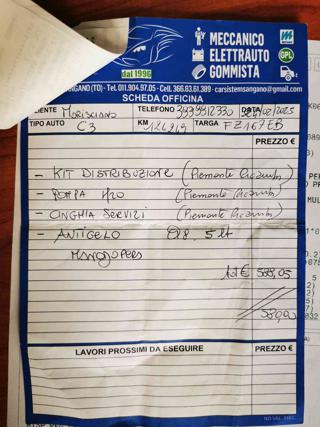 MECCANICO
ELETTRAUTO
GOMMISTA
GPL
dal 1996
ANGANO (TO) - Tel. 011.904.97.05 - Cell. 366.63.61.389 - carsistemsangano@gmail.com
SCHEDA OFFICINA
CLIENTE TELEFONO DATA
TIPO AUTO C3 KM TARGA FZ167EB
PREZZO €
- KIT DISTRIBUZIONE (Piemonte Ricambi)
- POMPA H2O (Piemonte Ricambi)
- CINGHIA SERVIZI (Piemonte Ricambi)
- ANTIGELO 5 lt
MANODOPERA
€ 589,05
580,00
LAVORI PROSSIMI DA ESEGUIRE PREZZO €